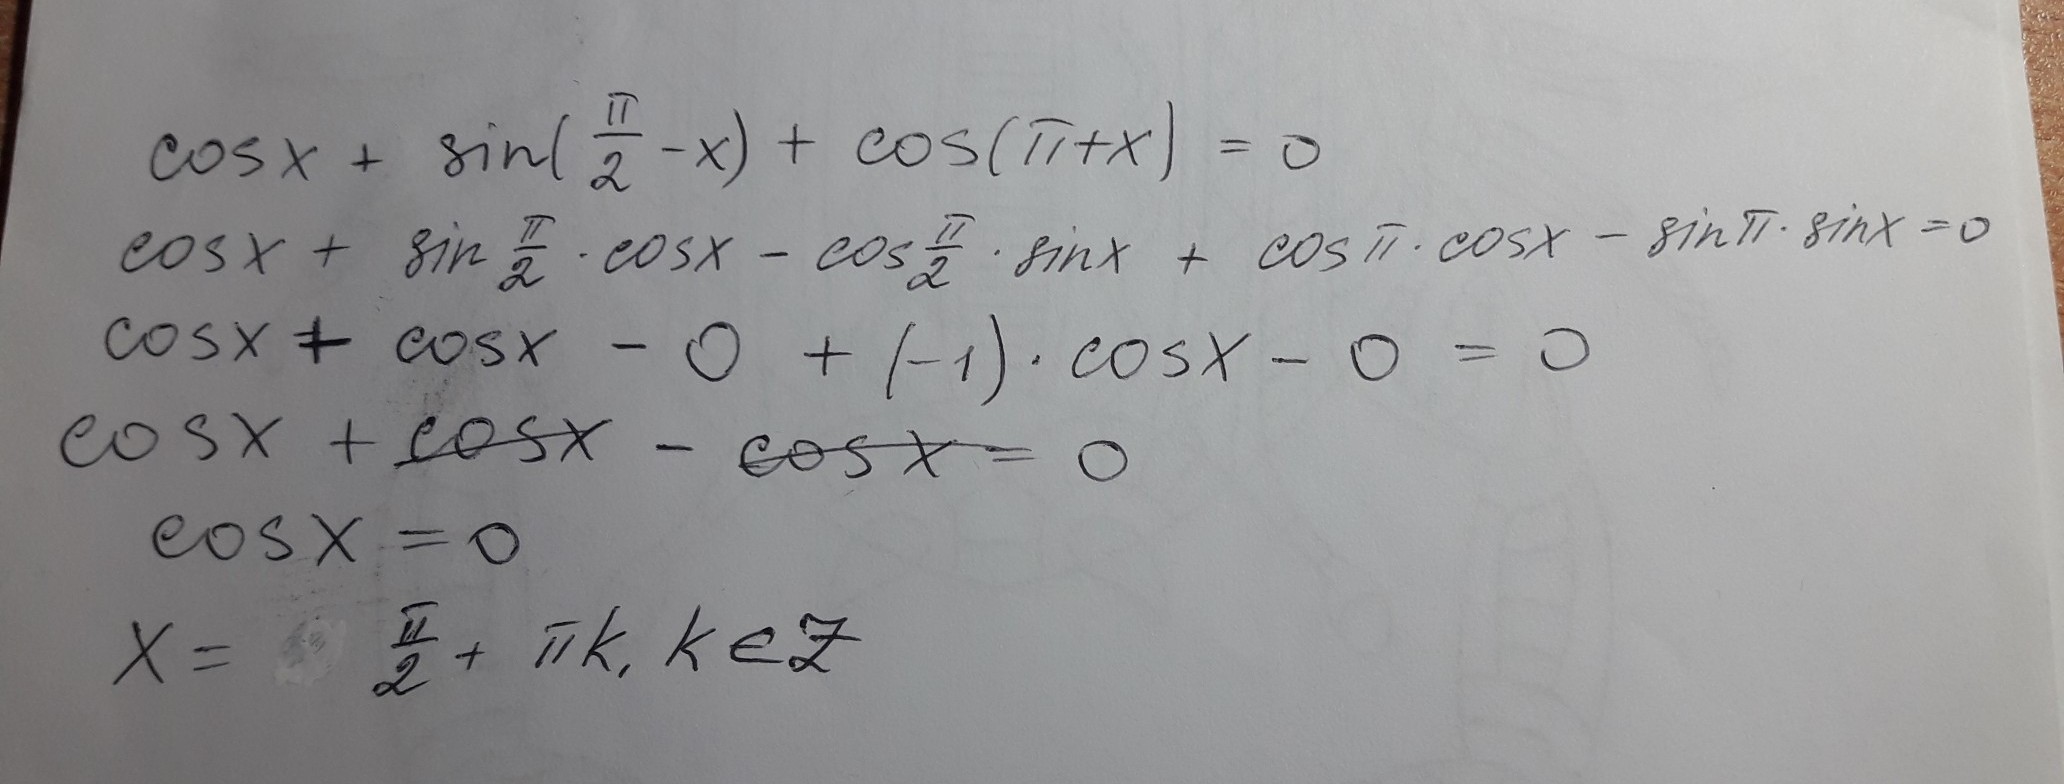 cosx + sin(π/2 -x) + cos(π+x) = 0
cosx + sin π/2 · cosx - cos π/2 · sinx + cos π · cosx - sin π · sinx = 0
cosx + cosx - 0 + (-1) · cosx - 0 = 0
cosx + cosx - cosx = 0
cosx = 0
x = π/2 + πk, k ∈ Z